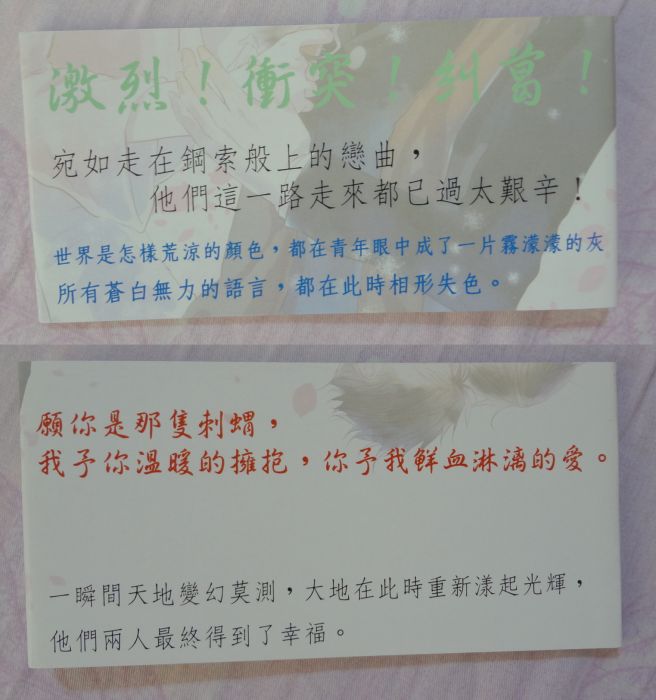 激烈！衝突！糾葛！
宛如走在鋼索般上的戀曲，
他們這一路走來都已過太艱辛！
世界是怎樣荒涼的顏色，都在青年眼中成了一片霧濛濛的灰
所有蒼白無力的語言，都在此時相形失色。
願你是那隻刺蝟，
我予你溫暖的擁抱，你予我鮮血淋漓的愛。
一瞬間天地變幻莫測，大地在此時重新漾起光輝，
他們兩人最終得到了幸福。